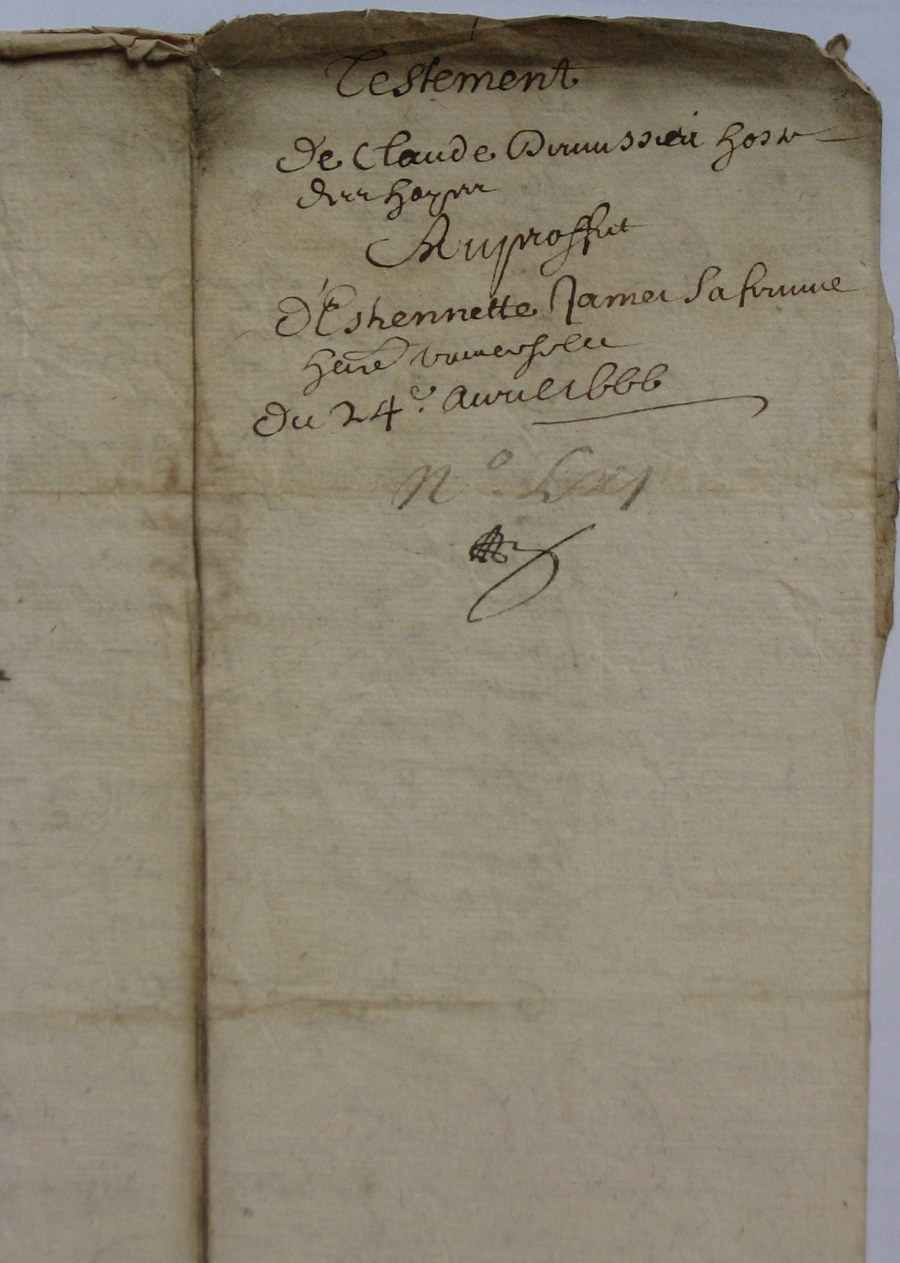 Testement
De Claude hoste
Du
Au proffit
d'Estiennette Jamei sa femme
heritiere universelle
Du 24e. Avvril 1666
No.